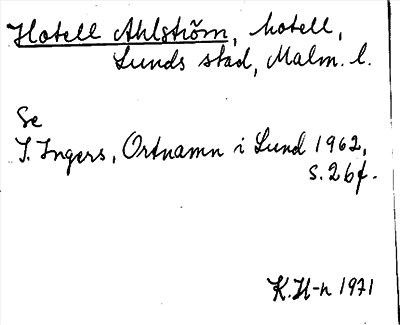 Hotell Ahlström, hotell,
Lunds stad, Malm. l.
Se
I. Ingers, Ortnamn i Lund 1962,
s. 26f.
K. H-n 1971